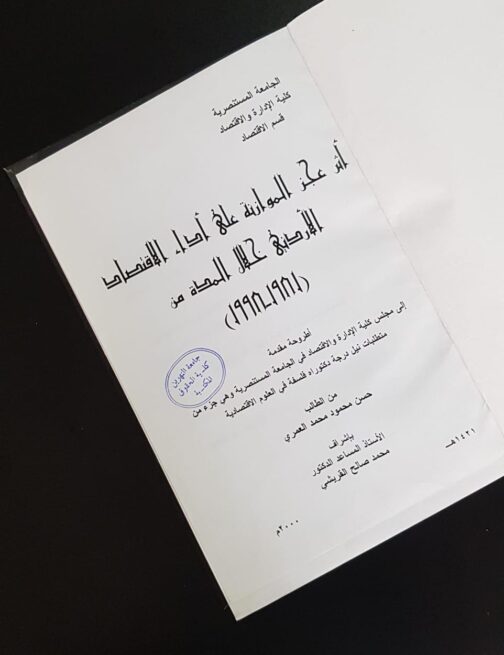 الجامعة المستنصرية
كلية الإدارة والاقتصاد
قسم الاقتصاد
أثر عجز الموازنة على أداء الاقتصاد
الأردني خلال المدة من
(١٩٨١-١٩٩٨)
اطروحة مقدمة
إلى مجلس كلية الإدارة والاقتصاد في الجامعة المستنصرية وهي جزء من
متطلبات نيل درجة دكتوراه فلسفة في العلوم الاقتصادية
من الطالب
حسن محمود محمد العمري
بإشراف
الأستاذ المساعد الدكتور
محمد صالح القريشي
١٤٢١هـ
٢٠٠٠م
جامعة النهرين
كلية الحقوق
المكتبة